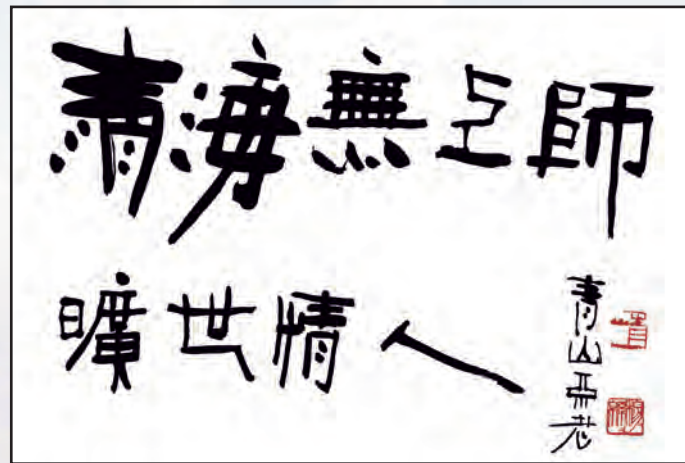 青海無上師
曠世情人
青山不老